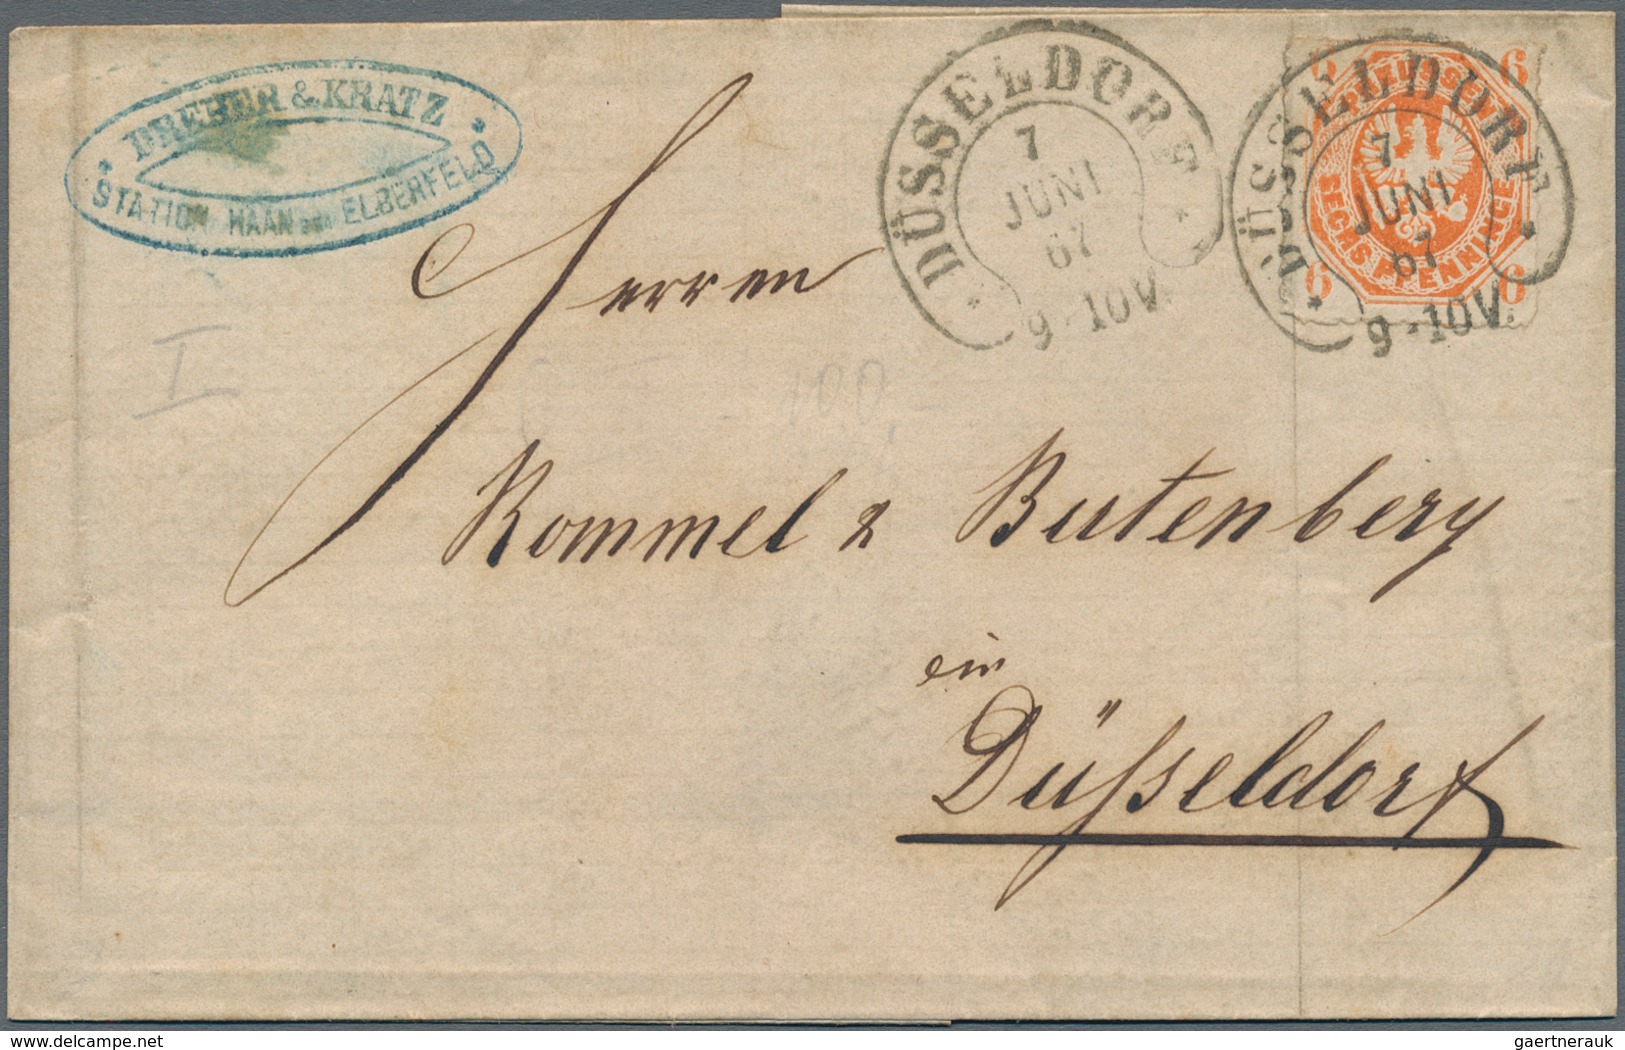 DREHER & KRATZ
STATION HAAN BEI ELBERFELD
DÜSSELDORF
7
JUNI
67
9-10V.
DÜSSELDORF
7
JUNI
67
9-10V.
6
6
6
6
PREUSSEN
SECHS PFENNINGE
I
100,-
Herren
Rommel & Butenberg
in
Düsseldorf
gaertnerauk